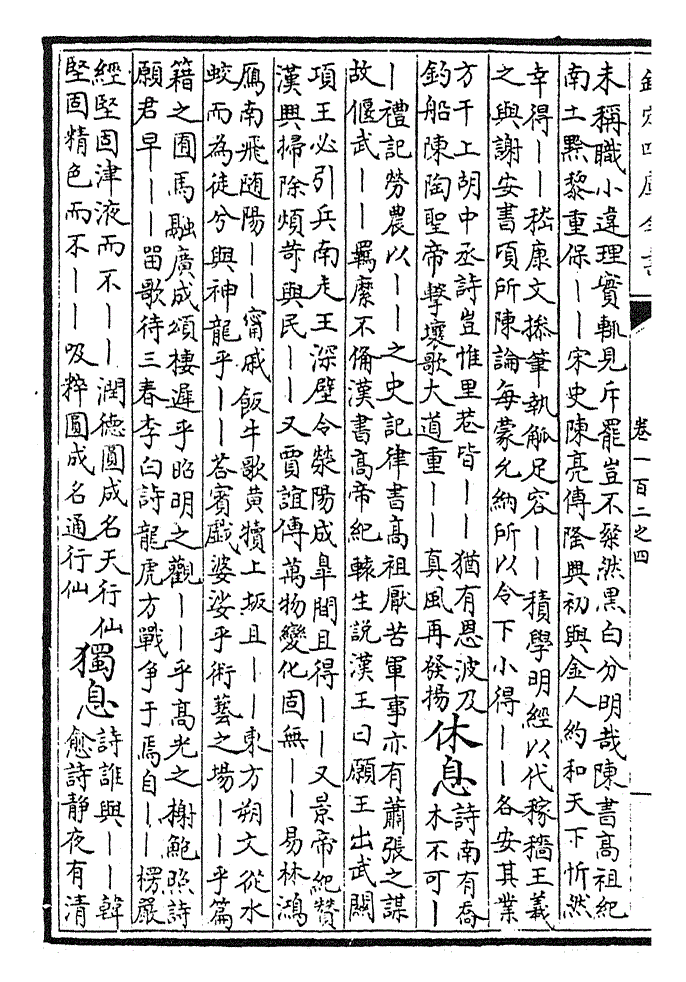 欽定四庫全書
卷一百二之四
未稱職小違理實輒見斥罷豈不粲然黑白分明哉陳書髙祖紀
南土黔黎重保——宋史陳亮傳隆興初與金人約和天下忻然
幸得——嵇康文搽筆執觚足容——積學明經以代稼穡王義
之與謝安書頃所陳論每蒙允納所以令下小得——各安其業
方干上胡中丞詩豈惟里巷皆——猶有恩波及
釣船陳陶聖帝擊壤歌大道重——真風再發揚
休息
詩南有喬
木不可—
—禮記勞農以——之史記律書髙祖厭苦軍事亦有蕭張之謀
故偃武——羈縻不備漢書髙帝紀轅生説漢王曰願王出武關
項王必引兵南走王深壁令滎陽成臯間且得——又景帝紀贊
漢興掃除煩苛與民——又賈誼傳萬物變化固無——易林鴻
鴈南飛随陽——甯戚飯牛歌黄犢上坂且——東方朔文從水
蛟而為徒兮與神龍乎——荅賓戲婆娑乎術藝之場——乎篇
籍之囿馬融廣成頌棲遲乎昭明之觀——乎髙光之榭鮑照詩
願君早——畱歌待三春李白詩龍虎方戰争于焉自——楞嚴
經堅固津液而不——潤德圓成名天行仙
堅固精色而不——吸粹圓成名通行仙
獨息
詩誰與——韓
愈詩静夜有清